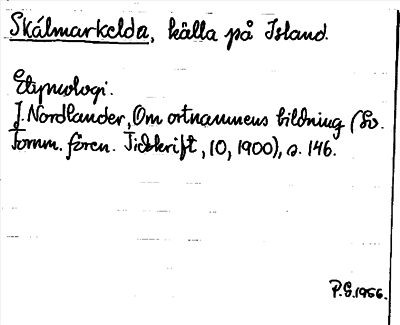 Skálmarkelda, källa på Island.
Etymologi.
J. Nordlander, Om ortnamnens bildning (Sv.
Fornm. fören. Tidskrift, 10, 1900), s. 146.
P.G. 1956.